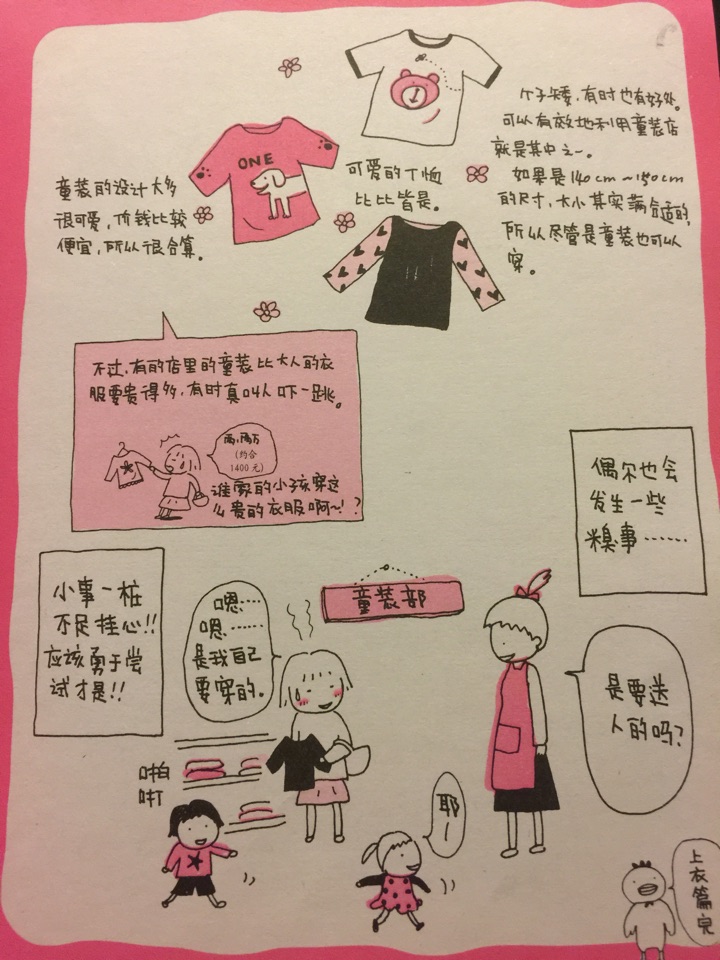 个子矮，有时也有好处。
可以有效地利用童装店
就是其中之一。
如果是140cm～150cm
的尺寸，大小其实满合适的，
所以尽管是童装也可以
穿。
ONE
可爱的T恤
比比皆是。
童装的设计大多
很可爱，价钱比较
便宜，所以很合算。
不过，有的店里的童装比大人的衣
服要贵得多，有时真叫人吓一跳。
两，两万
（约合
1400元）
谁家的小孩穿这
么贵的衣服啊~！？
偶尔也会
发生一些
糗事……
童装部
是要送
人的吗？
嗯……
嗯……
是我自己
要穿的。
小事一桩
不足挂心！！
应该勇于尝
试才是！！
啪
嗒
耶
—
上
衣
篇
完